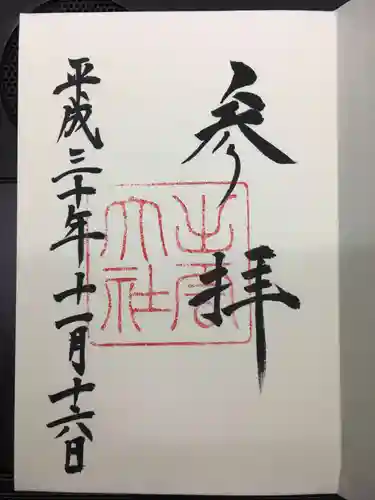 参拝
出雲大社
平成三十年十一月十六日